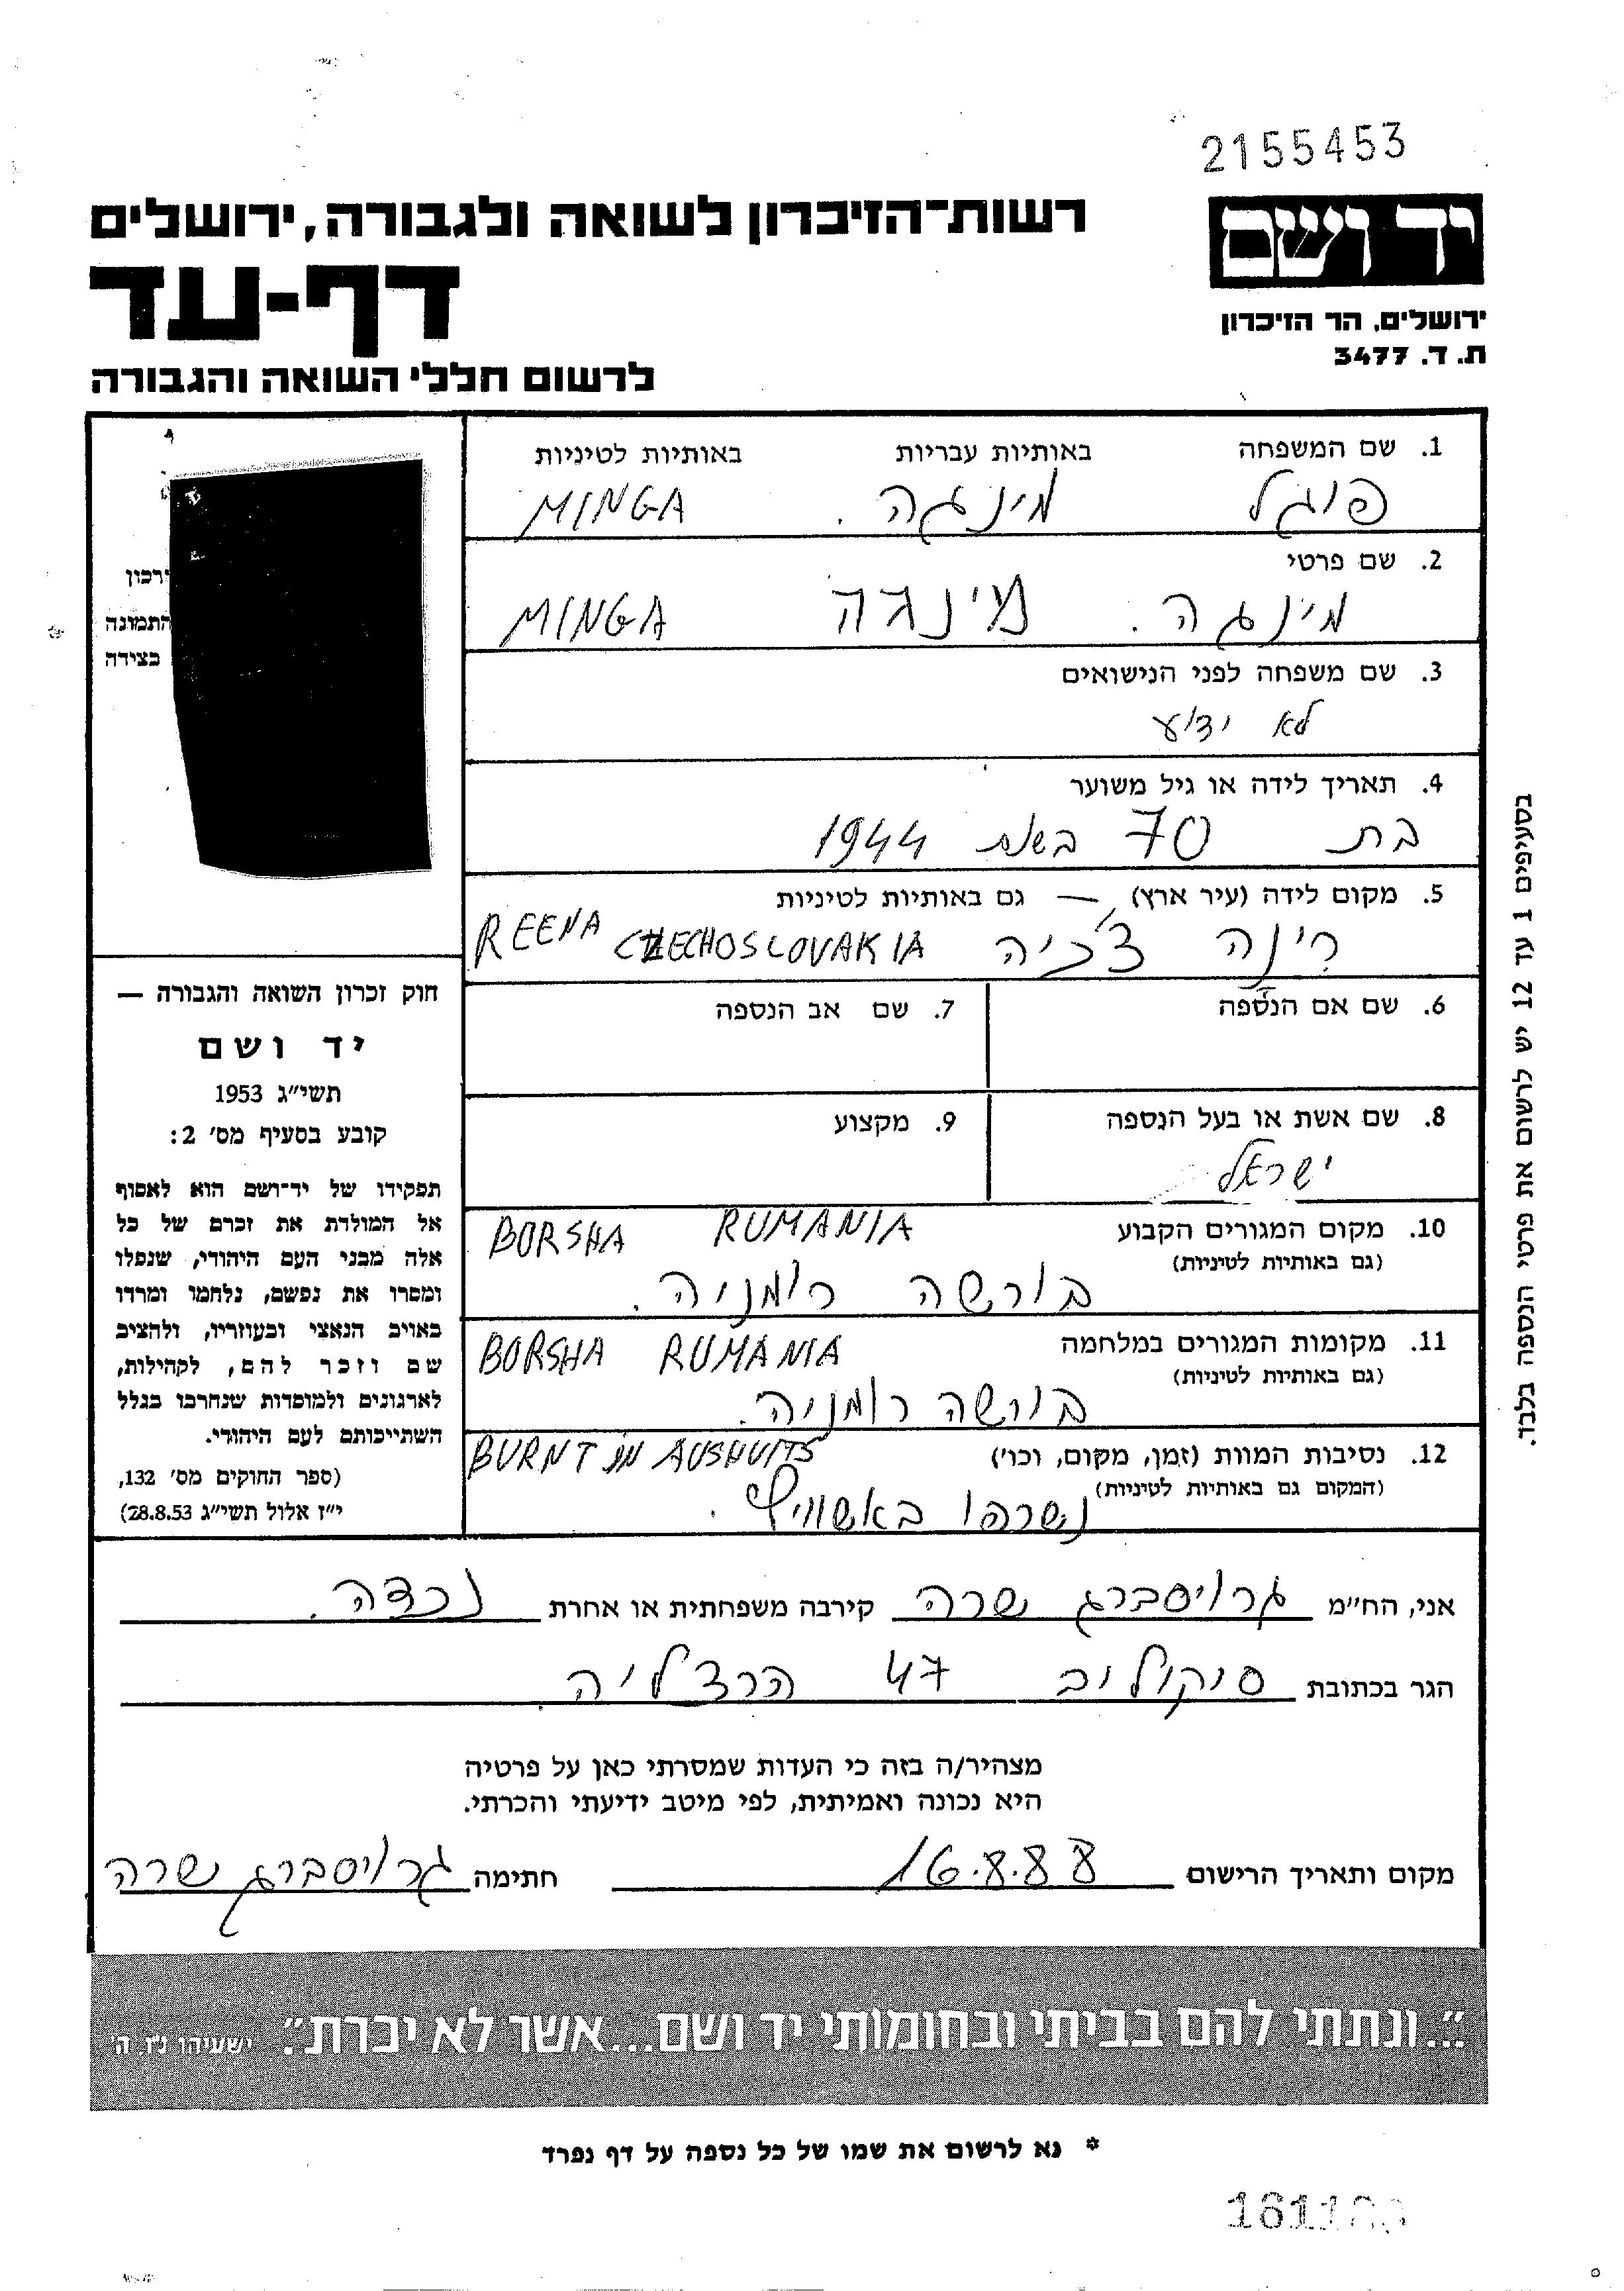 2155453
רשות־הזיכרון לשואה ולגבורה, ירושלים
יד ושם
דף-עד
ירושלים, הר הזיכרון
ת. ד. 3477
לרשום חללי השואה והגבורה
1. שם המשפחה באותיות עבריות באותיות לטיניות
פוגל מינגה. MINGA
2. שם פרטי
מינגה. מינגה MINGA
3. שם משפחה לפני הנישואים
לא ידוע
4. תאריך לידה או גיל משוער
בת 70 בשנת 1944
5. מקום לידה (עיר ארץ) — גם באותיות לטיניות
רינה צ'כיה REENA CZECHOSLOVAKIA
6. שם אם הנספה 7. שם אב הנספה
8. שם אשת או בעל הנספה 9. מקצוע
ישראל
10. מקום המגורים הקבוע BORSHA RUMANIA
(גם באותיות לטיניות)
בורשה רומניה.
11. מקומות המגורים במלחמה BORSHA RUMANIA
(גם באותיות לטיניות)
בורשה רומניה.
12. נסיבות המוות (זמן, מקום, וכו') BURNT IN AUSHVITS
(המקום גם באותיות לטיניות)
נשרפו באשוויץ.
התמונה
בצידה
חוק זכרון השואה והגבורה —
יד ושם
תשי״ג 1953
קובע בסעיף מס׳ 2:
תפקידו של יד־ושם הוא לאסוף
אל המולדת את זכרם של כל
אלה מבני העם היהודי, שנפלו
ומסרו את נפשם, נלחמו ומרדו
באויב הנאצי ובעוזריו, ולהציב
שם וזכר להם, לקהילות,
לארגונים ולמוסדות שנחרבו בגלל
השתייכותם לעם היהודי.
(ספר החוקים מס׳ 132,
י״ז אלול תשי״ג 28.8.53)
בסעיפים 1 עד 12 יש לרשום את פרטי הנספה בלבד.
אני, הח״מ גרויסברג שרה קירבה משפחתית או אחרת נכדה.
הגר בכתובת סוקולוב 47 הרצליה.
מצהיר/ה בזה כי העדות שמסרתי כאן על פרטיה
היא נכונה ואמיתית, לפי מיטב ידיעתי והכרתי.
מקום ותאריך הרישום 16.8.88 חתימה גרויסברג שרה
״...ונתתי להם בביתי ובחומותי יד ושם...אשר לא יכרת״. ישעיהו נ״ו, ה׳
* נא לרשום את שמו של כל נספה על דף נפרד